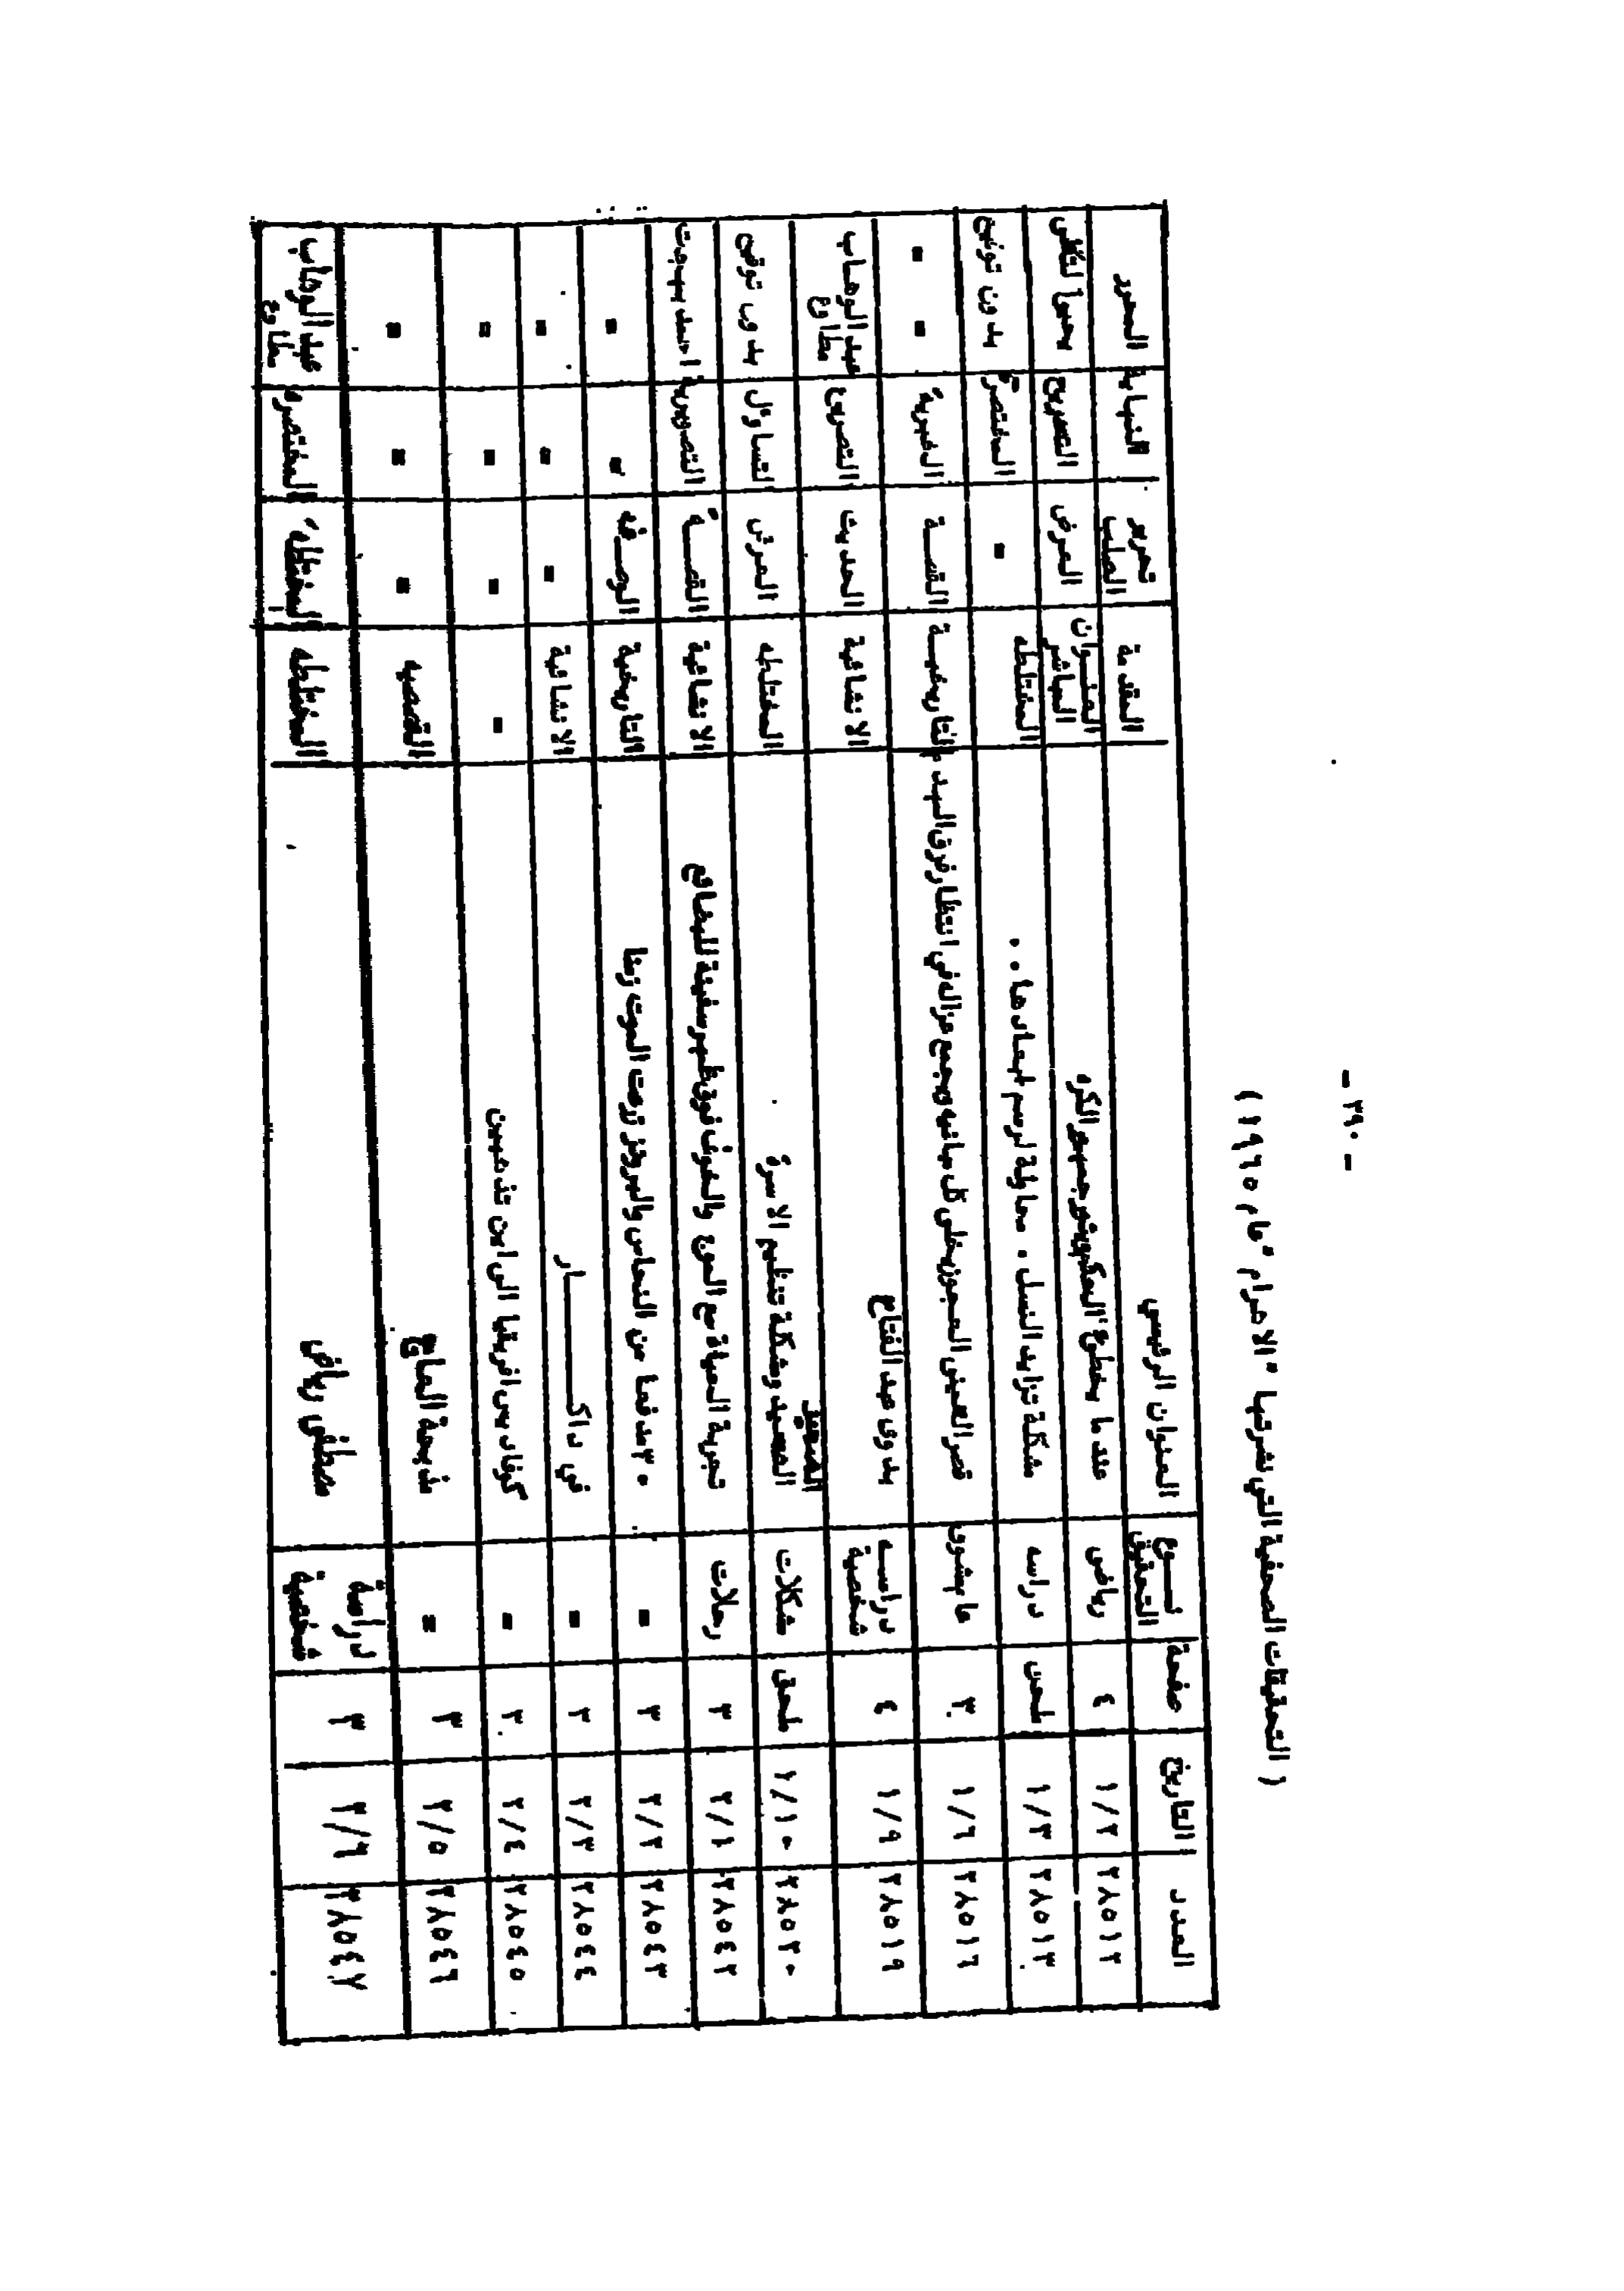 - ٣٩٠ -
( التحقيقات الصحفية التي نشرتها " الاهرام " عام ١٩٦٥ )
العدد التاريخ صفحة نوع التحقيق العنوان الرئيسي المقدمة تحرير الصلب النهاية المحرر
٢٨٥١٢ ١/٢ ٤ رياضى عندما يخطئ جمهور الكره العنوان المباشر العرض التصريح
٢٨٥١٣ ١/٣ ملحق دراسه مشكلة تزايد النسل . محاولة لرسم ابعادها . . المختلطه = المختصرة بدون توقيع
٢٨٥١٦ ١/٦ ٣ قصر العينى العجوز يخلى كل مبانيه ويجمع عزاله في انتظار فرق الهدم التاريخيــة القصــة الخبرية = =
٢٨٥١٩ ١/٩ ٤ دراســه شخصية بدوى عبد الفتاح الانشائية الحديث التصريح عبد الوهاب مطاوع
٢٨٥٢٠ ١/١٠ ملحق مشكلات الصعيد ومشكلة تنظيم الاسرة المختلطه العرض التساؤل بدون توقيع
٢٨٥٤٢ ٢/١ ٣ رحلات تجربة الحياة مع الموج والخوف فوق ظهر سفينة للبضائع الانشائية القصــة التصويرية احمد بهجت
٢٨٥٤٣ ٢/٢ ٣ = ٣٠ مدفعا من النحاس والبرونز زرعت الموت زمنا التاريخية الوصــفيه = =
٢٨٥٤٤ ٢/٣ ٣ = في داكــــــار الانشائية = = =
٢٨٥٤٥ ٢/٤ ٣ = كوفاديس افريقيا الى اين تذهبين = = = =
٢٨٥٤٦ ٢/٥ ٣ = مذبحة العاج القصصيه = = =
٢٨٥٤٧ ٢/٦ ٣ دراسة شخصية مصطفى رياض المختلطه المختلطه المختصره عبد الوهاب مطاوع